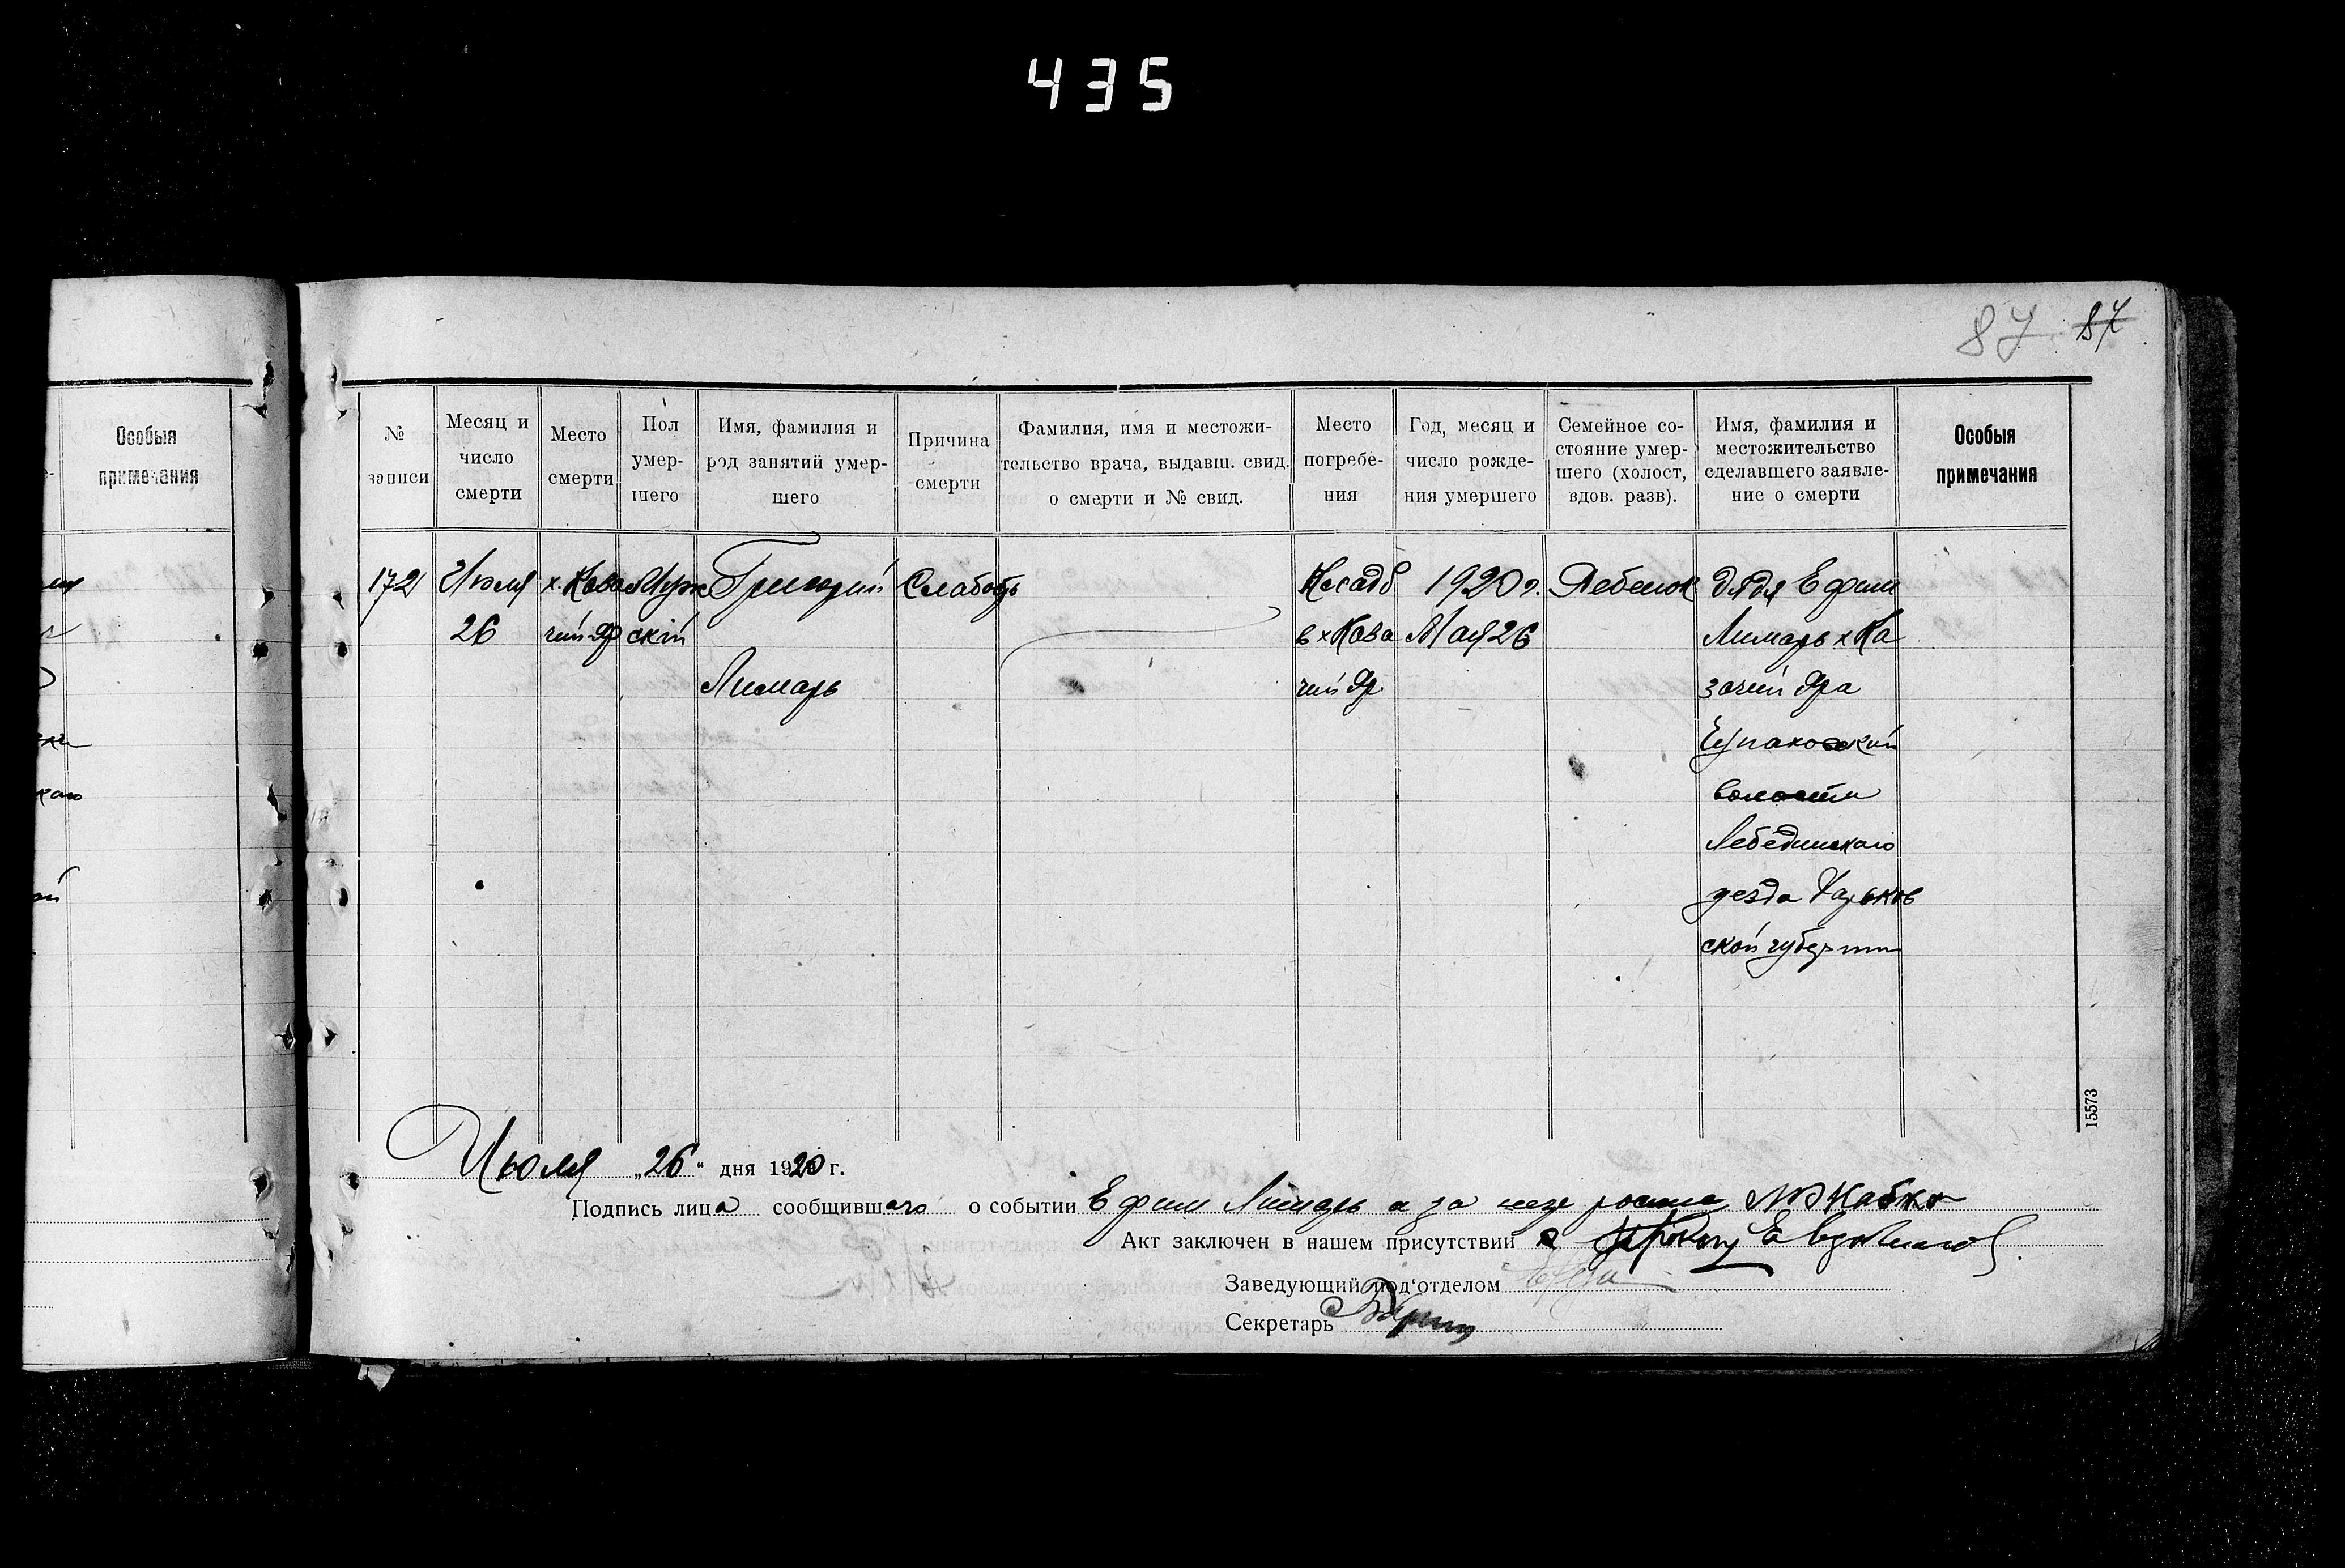 435
87 87
Особыя
примечания
№
записи
Месяц и
число
смерти
Место
смерти
Пол
умер-
шего
Имя, фамилия и
род занятий умер-
шего
Причина
смерти
Фамилия, имя и местожи-
тельство врача, выдавш. свид.
о смерти и № свид.
Место
погребе-
ния
Год, месяц и
число рожде-
ния умершего
Семейное со-
стояние умер-
шего (холост,
вдов. разв).
Имя, фамилия и
местожительство
сделавшего заявле-
ние о смерти
Особыя
примечания
172
Июля
26
х. Каза
чий Яр
Муж
скій
Григорий
Лимарь
Слабость
Кладб
в х Каза
чий Яр
1920 г.
Мая 26
Ребенок
дядя Ефим
Лимарь х Ка
зачий Яра
волости
Лебединскаго
уезда Харьков
ской губернии
15573
Июля „26“ дня 1920 г.
Подпись лица сообщившаго о событии Ефим Лимарь а за него
Акт заключен в нашем присутствии
Заведующий под'отделом
Секретарь